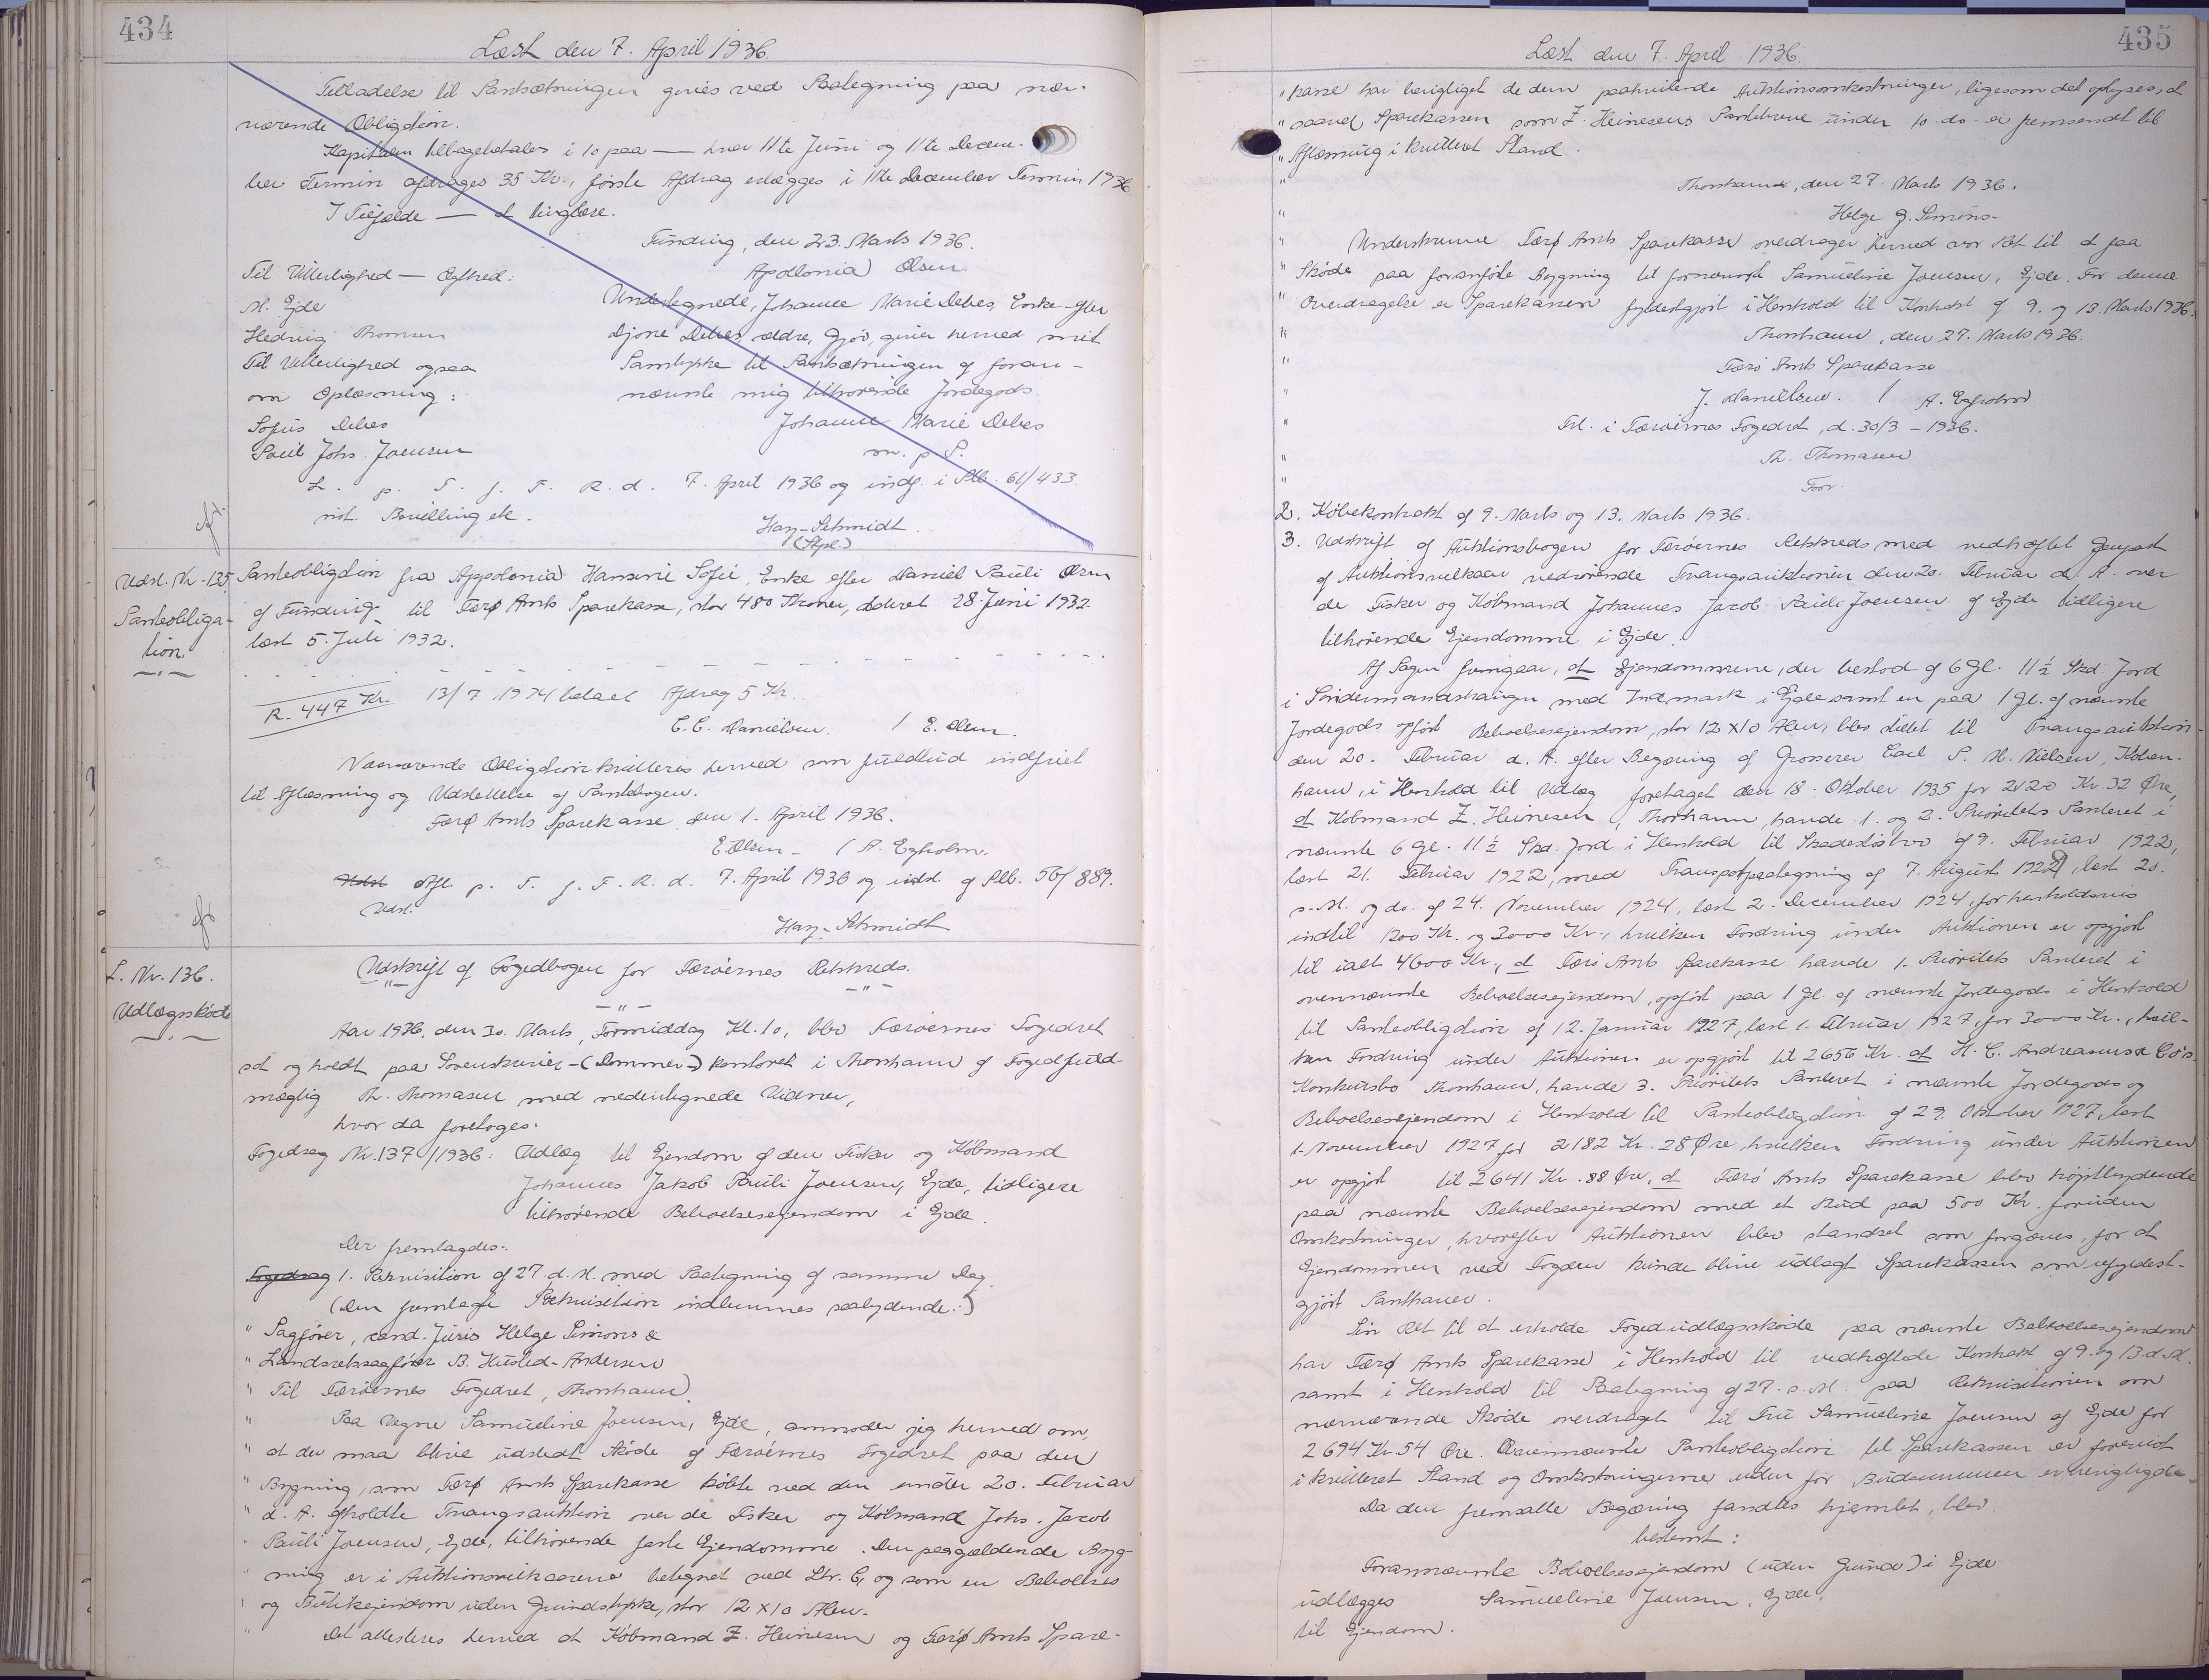 434
Læst den 7. April 1936.
Tilladelse til Pantsætningen gives ved Paategning paa nær-
værende Obligation.
Kapitalen tilbagebetales i 10 paa — hver 11te Juni og 11te Decem-
ber Termin afdrages 35 Kr., første Afdrag erlægges i 11te December Termin 1936
I Tilfælde — at tinglæse.
Funding, den 23. Marts 1936.
Til Vitterlighed — Ægthed:
Apollonia Olsen
M. Ejde
Hedvig Thomsen
Til Vitterlighed ogsaa
om Oplæsning:
Sofus Debes
Poul Johs. Joensen
Undertegnede, Johanne Marie Debes, Enke efter
Djone Debes, ældre, Gjov, giver herved mit
Samtykke til Pantsætningen af foran-
nævnte mig tilhørende Jordegods.
Johanne Marie Debes
m. p. P.
L. p. T. f. F. R. d. 7. April 1936 og indf. i Ptb. 61/433.
not. Bevilling etc.
Hay-Schmidt
(Stpl.)
Udsl. Nr. 135.
Panteobliga-
tion.
Panteobligation fra Appolonia Hansine Sofie, Enke efter Daniel Pauli Olsen
af Funding til Færø Amts Sparekasse, stor 480 Kroner, dateret 28. Juni 1932.
læst 5. Juli 1932.
R. 447 Kr. 13/7 1934 betalt Afdrag 5 Kr.
C. C. Danielsen. / E. Olsen.
Nærværende Obligation kvitteres herved som fuldtud indfriet
til Aflæsning og Udslettelse af Pantebogen.
Færø Amts Sparekasse den 1. April 1936.
E. Olsen - / A. Egholm.
Udsl Afl. p. T. f. F. R. d. 7. April 1936 og udsl. af Ptb. 56/889.
Udsl.
Hay-Schmidt
L. Nr. 136.
Udlægsskøde
Udskrift af Fogedbogen for Færøernes Retskreds.
Aar 1936, den 30. Marts, Formiddag Kl. 10, blev Færøernes Fogedret
sat og holdt paa Sorenskriver-(Dommer-) kontoret i Thorshavn af Fogedfuld-
mægtig Th. Thomasen med nedentegnede Vidner,
hvor da foretoges:
Fogedsag Nr. 137/1936: Udlæg til Ejendom af den Fisker og Købmand
Johannes Jakob Pauli Joensen, Ejde, tidligere
tilhørende Beboelsesejendom i Ejde.
Der fremlagdes:
Fogedsag 1. Rekvisition af 27. d. M. med Paategning af samme Dag.
(Den fremlagte Rekvisition indlemmes saalydende:)
" Sagfører, cand. juris Helge Simons &
" Landsretssagfører B. Husted-Andersen
" Til Færøernes Fogedret, Thorshavn.
" Paa Vegne Samueline Joensen, Ejde, anmoder jeg herved om,
" at der maa blive udstedt Skøde af Færøernes Fogedret paa den
" Bygning, som Færø Amts Sparekasse købte ved den under 20. Februar
" d. A. afholdte Tvangsauktion over de Fisker og Købmand Johs. Jacob
" Pauli Joensen, Ejde, tilhørende faste Ejendomme. Den paagældende Byg-
" ning er i Auktionsvilkaarene betegnet ved Ltr. C, og som en Beboelses
" og Butiksejendom uden Grundstykke, stor 12 x 10 Alen.
" Det attesteres herved at Købmand Z. Heinesen og Færø Amts Spare-
435
Læst den 7. April 1936.
" kasse har berigtiget de dem paahvilende Auktionsomkostninger, ligesom det oplyses, at
" saavel Sparekassen som Z. Heinesens Pantebreve under 10. ds. er fremsendt til
" Aflæsning i kvitteret Stand.
" Thorshavn, den 27. Marts 1936.
" Helge G. Simons-
" Underskrevne Færø Amts Sparekasse overdrager herved vor Ret til at faa
" Skøde paa foranførte Bygning til fornævnte Samueline Joensen, Ejde. For denne
" Overdragelse er Sparekassen fyldestgjort i Henhold til Kontrakt af 9. og 13. Marts 1936.
" Thorshavn, den 27. Marts 1936.
" Færø Amts Sparekasse
" J. Danielsen. / A. Egholm
" Frl. i Færøernes Fogedret, d. 30/3 - 1936.
" Th. Thomasen
"
2. Købekontrakt af 9. Marts og 13. Marts 1936.
3. Udskrift af Auktionsbogen for Færøernes Retskreds med vedhæftet Genpart
af Auktionsvilkaar vedrørende Tvangsauktionen den 20. Februar d. A. over
de Fisker og Købmand Johannes Jacob Pauli Joensen af Ejde tidligere
tilhørende Ejendomme i Ejde.
Af Sagen fremgaar, at Ejendommene, der bestod af 6 Gl. 11½ Skd. Jord
i Søndermandshaugen med Indmark i Ejde samt en paa 1 Gl. af nævnte
Jordegods opført Beboelsesejendom, stor 12 x 10 Alen, blev stillet til Tvangsauktion
den 20. Februar d. A. efter Begæring af Grosserer Carl P. M. Nielsen, Køben-
havn, i Henhold til Udlæg foretaget den 18. Oktober 1935 for 2120 Kr. 32 Øre,
at Købmand Z. Heinesen, Thorshavn, havde 1. og 2. Prioritets Panteret i
nævnte 6 Gl. 11½ Skd. Jord i Henhold til Skadesløsbrev af 9. Februar 1922,
læst 21. Februar 1922, med Transportpaategning af 7. August 1922, læst 20.
s. M. og do. af 24. November 1924, læst 2. December 1924, for henholdsvis
indtil 1200 Kr. og 3000 Kr., hvilken Fordring under Auktionen er opgjort
til ialt 4600 Kr., at Færø Amts Sparekasse havde 1. Prioritets Panteret i
ovennævnte Beboelsesejendom, opført paa 1 Gl. af nævnte Jordegods i Henhold
til Panteobligation af 12. Januar 1927, læst 1. Februar 1927, for 3000 Kr., hvil-
ken Fordring under Auktionen er opgjort til 2656 Kr. at H. C. Andreasens & Co's
Konkursbo Thorshavn, havde 3. Prioritets Panteret i nævnte Jordegods og
Beboelsesejendom i Henhold til Panteobligation af 29. Oktober 1927, læst
1. November 1927 for 2182 Kr. 28 Øre, hvilken Fordring under Auktionen
er opgjort til 2641 Kr. 88 Øre, at Færø Amts Sparekasse blev højstbydende
paa nævnte Beboelsesejendom med et Bud paa 500 Kr. foruden
Omkostninger, hvorefter Auktionen blev standset som forgæves, for at
Ejendommen ved Fogden kunde blive udlagt Sparekassen som ufyldest-
gjort Panthaver.
Sin Ret til at erholde Fogedudlægsskøde paa nævnte Beboelsesejendom
har Færø Amts Sparekasse i Henhold til vedhæftede Kontrakt af 9. og 13. d. M.
samt i Henhold til Paategning af 27. s. M. paa Rekvisitionen om
nærværende Skøde overdraget til Fru Samueline Joensen af Ejde for
2694 Kr. 54 Øre. Ovennævnte Panteobligation til Sparekassen er forevist
i kvitteret Stand og Omkostningerne uden for Budsummen er berigtigede.
Da den fremsatte Begæring fandtes hjemlet, blev
bestemt:
Forannævnte Beboelsesejendom (uden Grund) i Ejde
udlægges Samueline Joensen, Ejde,
til Ejendom.